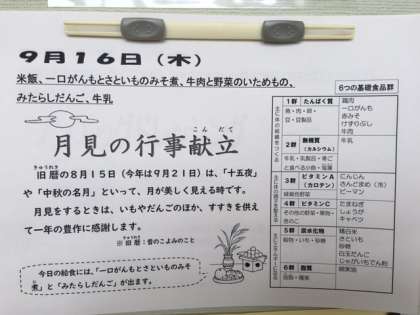 9月16日（木）
米飯、一口がんもとさといものみそ煮、牛肉と野菜のいためもの、
みたらしだんご、牛乳
こんだて
月見の行事献立
きゅうれき
旧暦の8月15日（今年は9月21日）は、「十五夜」
や「中秋の名月」といって、月が美しく見える時です。
月見をするときは、いもやだんごのほか、すすきを供え
て一年の豊作に感謝します。
きゅうれき
※ 旧暦：昔のこよみのこと
今日の給食には、「一口がんもとさといものみそ
煮」と「みたらしだんご」が出ます。
6つの基礎食品群
1群 たんぱく質
魚・肉・卵・
豆・豆製品
鶏肉
一口がんも
赤みそ
けずりぶし
牛肉
2群 無機質
（カルシウム）
牛乳・乳製品・骨ご
と食べる小魚・海藻
牛乳
3群 ビタミンA
（カロテン）
緑黄色野菜
にんじん
さんどまめ（冷）
ピーマン
4群 ビタミンC
その他の野菜・果物・
きのこ
たまねぎ
しょうが
キャベツ
5群 炭水化物
穀物・いも・砂糖
精白米
さといも
砂糖
白玉だんご
じゃがいもでん粉
6群 脂質
油脂・種実
綿実油